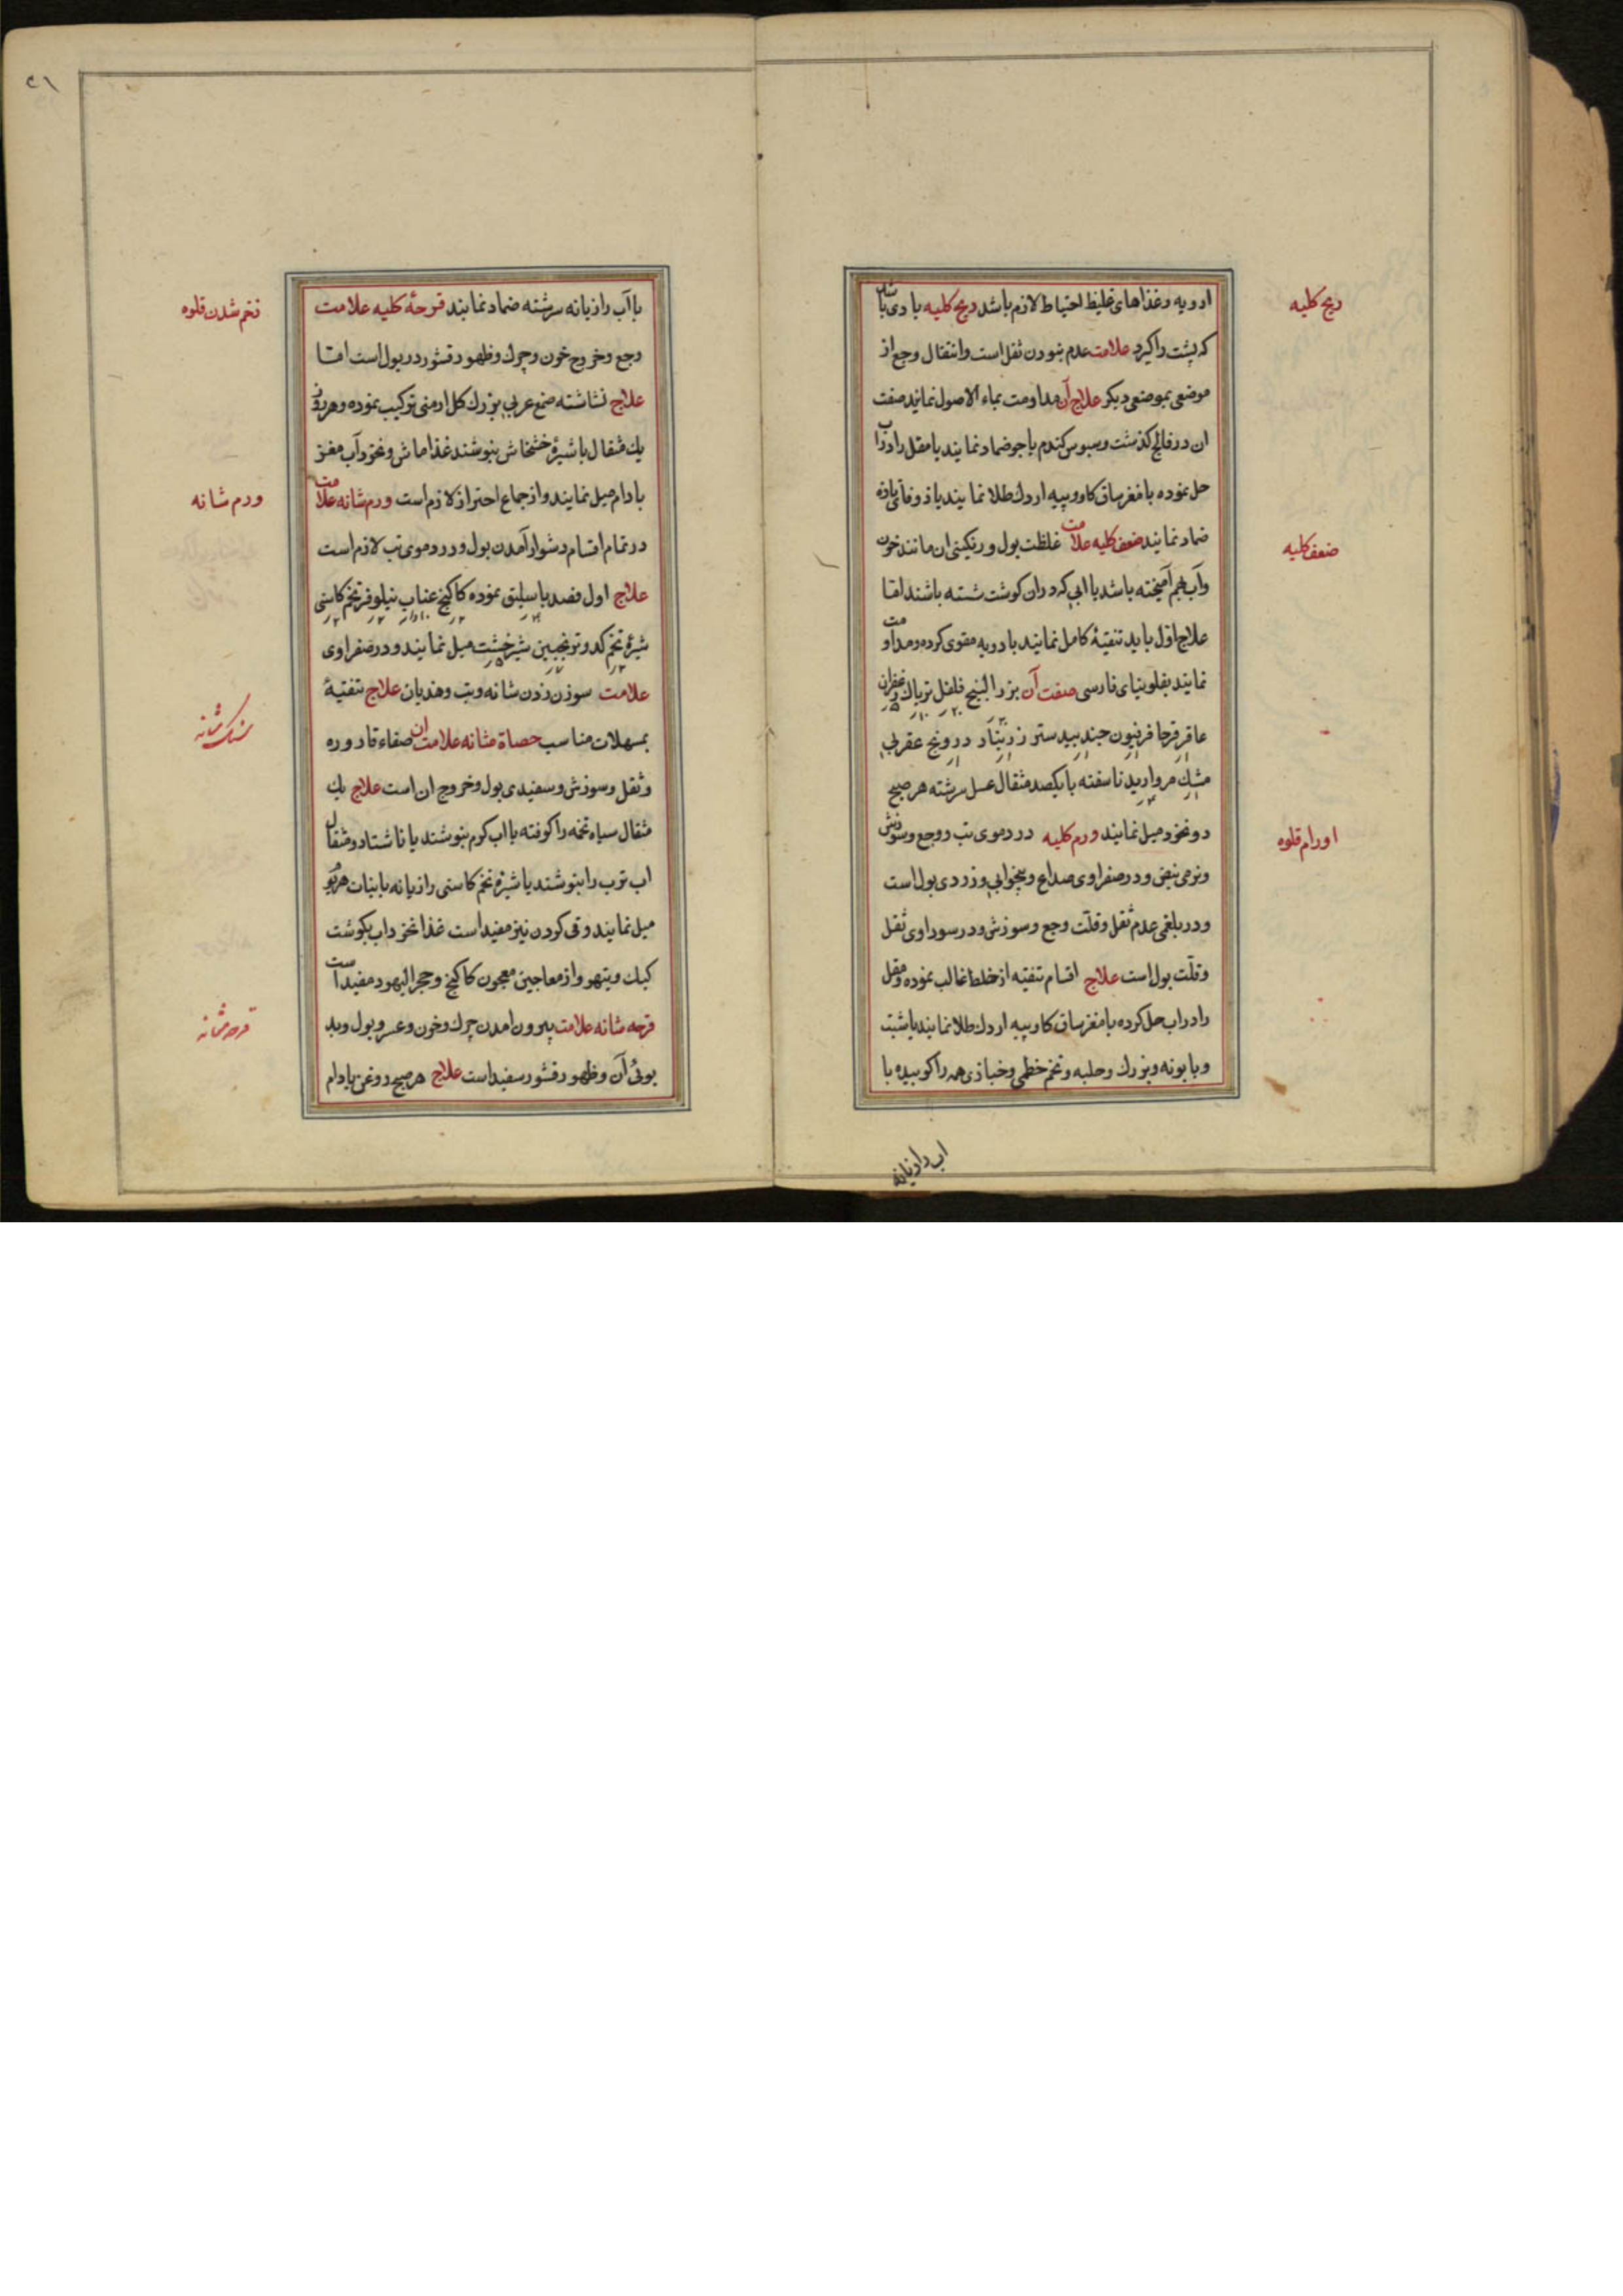 ادویه وغذاهای غلیظ احتیاط لازم باشد ریح کلیه بادی باشد
که پشت را کیرد علامت عدم نبودن ثقل است وانتقال وجع از
موضعی بموضعی دیکر علاج آن مداومت بماء الاصول نمایند صفت
ان در فالج کذشت وسبوس کندم یا جو ضماد نمایند یا مقل را در اب
حل نموده با مغز ساق کاو وپیه اردك طلا نمایند یا
ضماد نمایند ضعف کلیه علامت غلظت بول ورنکینی ان مانند خون
وآب بهم آمیخته باشد یا ابی که دران کوشت شسته باشند اما
علاج اول باید تنقیهٔ کامل نمایند بادویه مقوی کرده ومداومت
نمایند بفلونیای فارسی صفت آن بزر البنج فلفل تریاك زعفران
عاقرقرحا فرفیون جندبیدستر زرنباد درونج عقربی
مشك مروارید ناسفته با یکصد مثقال عسل سرشته هر صبح
دو نخود میل نمایند ورم کلیه در دموی تب ووجع وسوزش
ونرمی نبض ودر صفراوی صداع وبیخوابی وزردی بول است
ودر بلغمی عدم ثقل وقلّت وجع وسوزش ودر سوداوی ثقل
وقلّت بول است علاج اقسام تنقیه از خلط غالب نموده ومقل
را دراب حل کرده با مغز ساق کاو وپیه اردك طلا نمایند یا شبت
وبابونه وبزرك وحلبه وتخم خطمی وخبازی همه را کوبیده با
اب رازیانه
ریح کلیه
ضعف کلیه
اورام قلوه
٤١
با آب رازیانه سرشته ضماد نمایند قرحهٔ کلیه علامت
وجع وخروج خون وچرك وظهور قشور در بول است اما
علاج نشاسته صمغ عربی بزرك کل ارمنی ترکیب نموده وهر روز
یك مثقال با شیرهٔ خشخاش بنوشند غذا ماش ونخود آب مغز
بادام میل نمایند واز جماع احتراز لازم است ورم مثانه علامت
در تمام اقسام دشوار آمدن بول ودر دموی تب لازم است
علاج اول فصد باسلیق نموده کاکنج عناب نیلوفر تخم کاسنی
شیرهٔ تخم کدو ترنجبین شیرخشت میل نمایند ودر صفراوی
علامت سوزن زدن مثانه وتب وهذیان علاج تنقیهٔ
بمسهلات مناسب حصاة مثانه علامت ان صفاء قاروره
وثقل وسوزش وسفیدی بول وخروج ان است علاج یك
مثقال سیاه تخمه را کوفته با اب کرم بنوشند یا ناشتا دو مثقال
اب ترب را بنوشند یا شیرهٔ تخم کاسنی رازیانه با نبات هر روز
میل نمایند وقی کردن نیز مفید است غذا نخوداب بکوشت
کبك وتیهو واز معاجین معجون کاکنج وحجر الیهود مفید است
قرحه مثانه علامت بیرون امدن چرك وخون وعسر وبول وبد
بوئی آن وظهور قشور سفید است علاج هر صبح روغن بادام
زخم شدن قلوه
ورم مثانه
سنك مثانه
قرحه مثانه